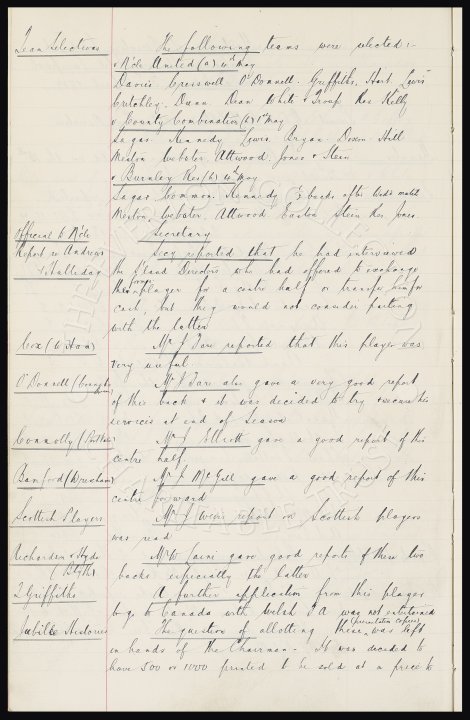 Team Selections
The following teams were selected:-
v Nelson United (a) 4th May
Davies Cresswell O'Donnell. Griffiths. Hart Lewis
Critchley. Dunn Dean White & Troup Res Kelly
v County Combination (h) 1st May
Sagar Kennedy Lewis Bryan Dixon Hill
Meston Webster Attwood. Jones & Stein
v Burnley Res (h) 4th May
Sagar Common. Kennedy ½ backs after Wed's match
Meston, Webster. Attwood Easton Stein Res Jones.
Official to
Secretary
Report re Andrews
& Halliday
Secy reported that he had interviewed
the Directors who had offered to exchange
the former player for a centre half or transfer him for
cash, but they would not consider parting
with the latter
Cox (W Ham)
Mr J Fare reported that this player was
very useful
O'Donnell
Mr J Fare also gave a very good report
of this back & it was decided to try & secure his
services at end of Season
Connolly
Mr J Elliott gave a good report of this
centre half
Bamford (Wrexham)
Mr J McGill gave a good report of this
centre forward
Scottish Players
Mr J Weirs report on Scottish players
was read
Richardson & Hyde
(Blyth)
Mr W Cairns gave good reports of these two
backs especially the latter
T Griffiths
A further application from this player
to go to Canada with Welsh F A was not entertained
Jubilee Histories
The question of allotting these (presentation copies) was left
in hands of the Chairman - It was decided to
have 500 or 1000 printed to be sold at a price to